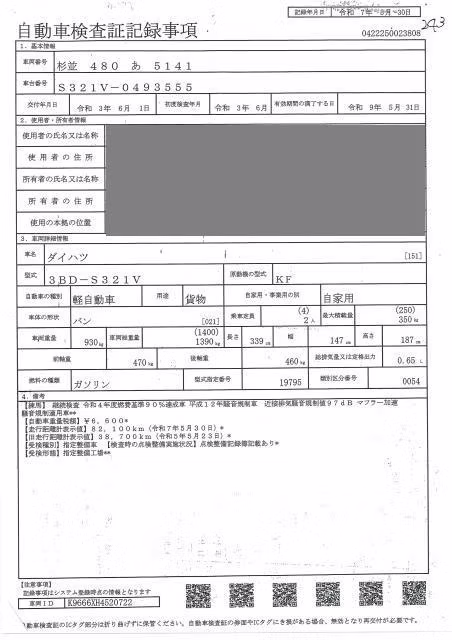 記録年月日 令和 7年 5月 30日
243
自動車検査証記録事項
0422250023808
1. 基本情報
車両番号 杉並 480 あ 5141
車台番号 S321V-0493555
交付年月日 令和 3年 6月 1日 初度検査年月 令和 3年 6月 有効期間の満了する日 令和 9年 5月 31日
2. 使用者・所有者情報
使用者の氏名又は名称
使用者の住所
所有者の氏名又は名称
所有者の住所
使用の本拠の位置
3. 車両詳細情報
車名 ダイハツ [151]
型式 3BD-S321V 原動機の型式 KF
自動車の種別 軽自動車 用途 貨物 自家用・事業用の別 自家用
車体の形状 バン [021] 乗車定員 (4) 2人 最大積載量 (250) 350kg
車両重量 930kg 車両総重量 (1400) 1390kg 長さ 339cm 幅 147cm 高さ 187cm
前軸重 470kg 後軸重 460kg 総排気量又は定格出力 0.65L
燃料の種類 ガソリン 型式指定番号 19795 類別区分番号 0054
4. 備考
【練馬】 継続検査 令和4年度燃費基準90%達成車 平成12年騒音規制車 近接排気騒音規制値97dB マフラー加速
騒音規制適用車**
【自動車重量税額】¥6,600*
【走行距離計表示値】82,100km（令和7年5月30日）*
【旧走行距離計表示値】38,700km（令和5年5月23日）*
【受検種別】指定整備車 【検査時の点検整備実施状況】点検整備記録簿記載あり*
【受検形態】指定整備工場**
【注意事項】
記録事項はシステム登録時点の情報となります
車両ID K9666XH4520722
自動車検査証のICタグ部分は折り曲げずに保管ください。自動車検査証の券面やICタグにき損がある場合、無効となり再交付が必要です。